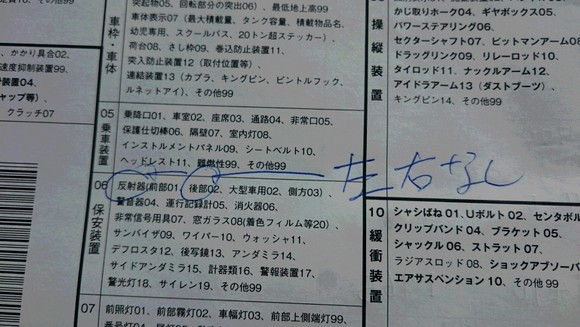 突起物05、回転部分の突出06)、最低地上高99
車枠・車体
車体表示07(最大積載量、タンク容量、積載物品名、
幼児専用、スクールバス、20トン超ステッカー)、
荷台08、さし枠09、巻込防止装置11、
突入防止装置12(取付位置等)、
連結装置13(カプラ、キングピン、ピントルフック、
ルネットアイ)、その他99
、かかり具合02、
速度抑制装置99、
装置04、
ャップ等)、
クラッチ07
05
乗車装置
乗降口01、車室02、座席03、通路04、非常口05、
保護仕切棒06、隔壁07、室内灯08、
インストルメントパネル09、シートベルト10、
ヘッドレスト11、難燃性99、その他99
06
保安装置
反射器(前部01、後部02、大型車用02、側方03)、
警音器04、運行記録計05、消火器06、
非常信号用具07、窓ガラス08(着色フィルム等20)、
サンバイザ09、ワイパー10、ウォッシャ11、
デフロスタ12、後写鏡13、アンダミラ14、
サイドアンダミラ15、計器類16、警報装置17、
警光灯18、サイレン19、その他99
左右なし
07
前照灯01、前部霧灯02、車幅灯03、前部上側端灯99、
操縦装置
かじ取りホーク04、ギヤボックス05、
パワーステアリング06、
セクターシャフト07、ピットマンアーム08
ドラッグリンク09、リレーロッド10、
タイロッド11、ナックルアーム12、
アイドラアーム13(ダストブーツ)、
キングピン14、その他99
10
緩衝装置
シャシばね01、Uボルト02、センタボル
クリップバンド04、ブラケット05、
シャックル06、ストラット07、
ラジアスロッド08、ショックアブソーバ
エアサスペンション10、その他99